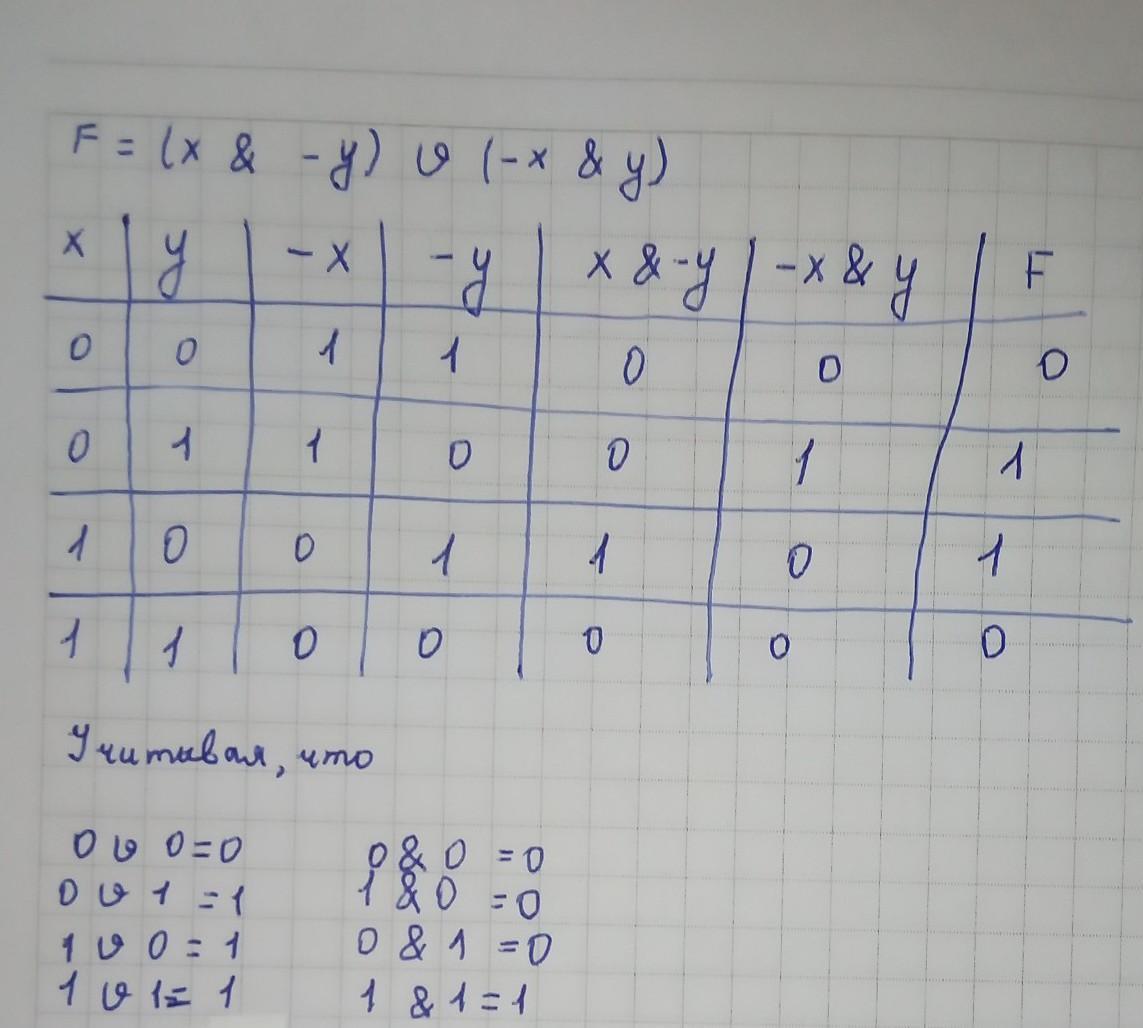 F = (x & -y) v (-x & y)
x y -x -y x & -y -x & y F
0 0 1 1 0 0 0
0 1 1 0 0 1 1
1 0 0 1 1 0 1
1 1 0 0 0 0 0
Учитывая, что
0 v 0=0 0 & 0 =0
0 v 1 =1 1 & 0 =0
1 v 0 = 1 0 & 1 =0
1 v 1= 1 1 & 1 = 1